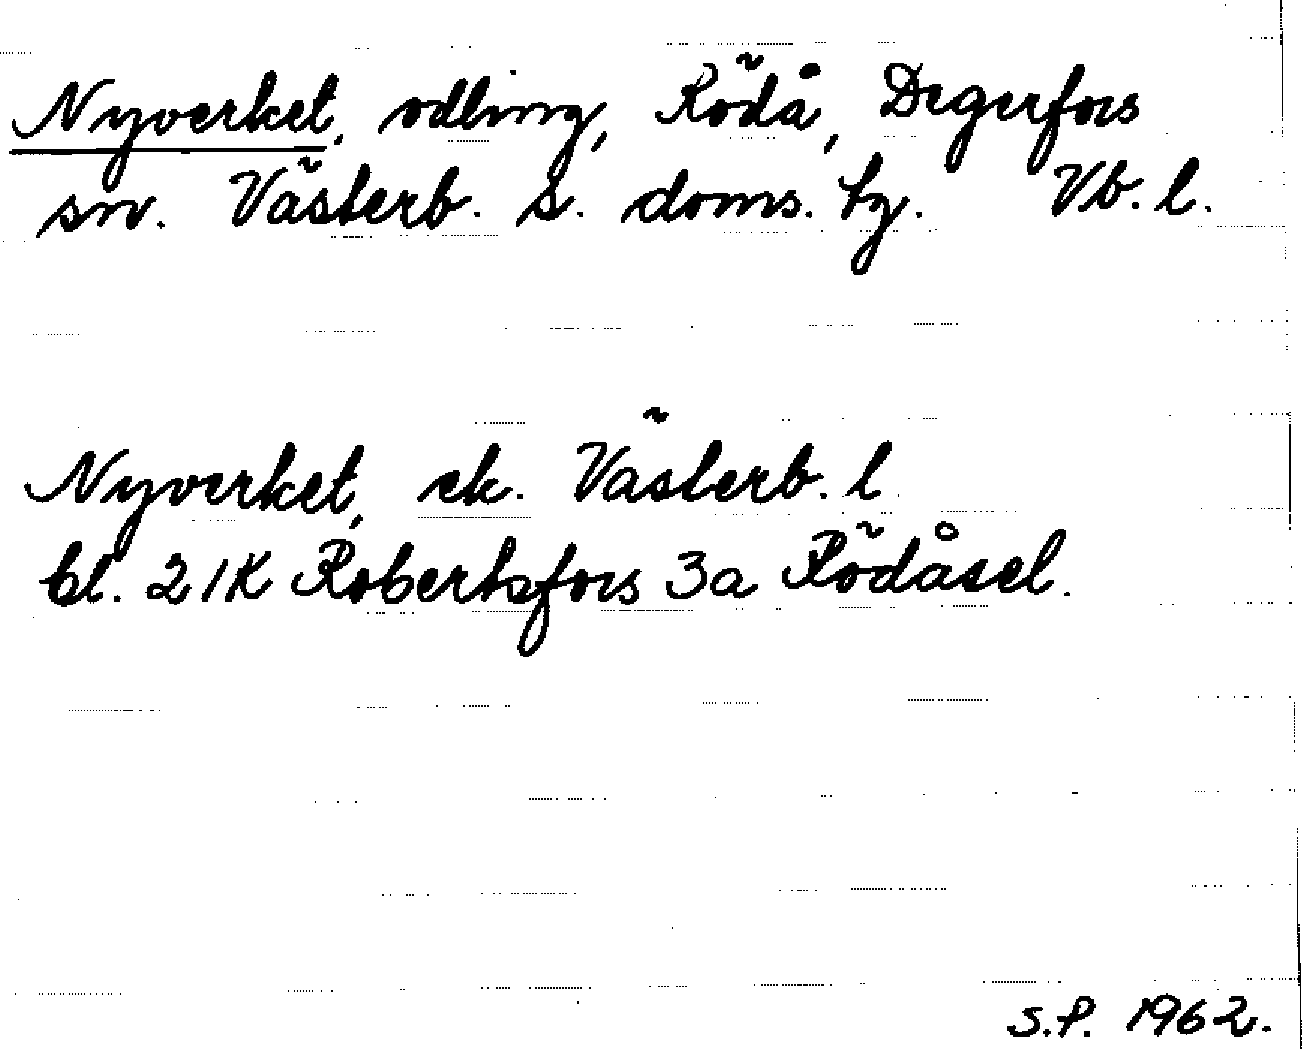 Nyverket, odling, Rödå, Degerfors
sn. Västerb. s. doms. tg. Vb. l.
Nyverket, ek. Västerb. l.
bl. 21K Robertsfors 3a Rödåsel.
S.P. 1962.